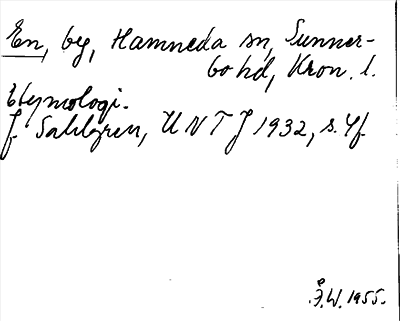 En, by, Hamneda sn, Sunner-
bo hd, Kron. l.
Etymologi.
J. Sahlgren, UNTJ 1932, s. 4f.
Å.W. 1955.